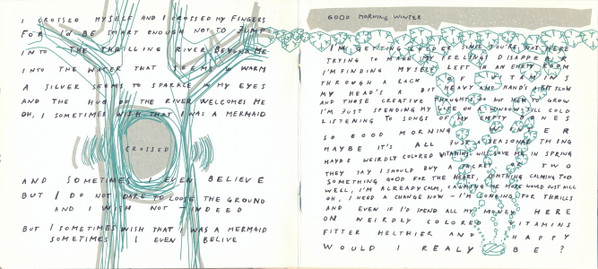 I CROSSED MYSELF AND I CROSSED MY FINGERS
FOR I'D BE SMART ENOUGH NOT TO JUMP
INTO THE THRILLING RIVER BEYOND ME
INTO THE WATER THAT SEEMS WARM
A SILVER SEEMS TO SPARKLE IN MY EYES
AND THE HUG OF THE RIVER WELCOMES ME
OH, I SOMETIMES WISH THAT I WAS A MERMAID
CROSSED
AND SOMETIMES I EVEN BELIEVE
BUT I DO NOT DARE TO LOOSE THE GROUND
AND I WISH NOT INDEED
BUT I SOMETIMES WISH THAT I WAS A MERMAID
SOMETIMES I EVEN BELIVE
GOOD MORNING WINTER
I'M GETTING COLDER SINCE YOU'RE NOT HERE
TRYING TO MAKE MY FEELINGS DISAPPEAR
I'M FINDING MYSELF LEFT IN AN EMPTY ROOM
THROUGH A LACK OF VITAMINS
MY HEAD'S A BIT HEAVY AND HAND'S A BIT SLOW
AND THOSE CREATIVE THOUGHTS DO BUT HEM TO GROW
I'M JUST SPENDING MY LIFE ON A WINDOWSILL COLD
LISTENING TO SONGS OF MY EMPTY BONES
SO GOOD MORNING WINTER
MAYBE IT'S ALL JUST A SEASONAL THING
MAYBE WEIRDLY COLORED VITAMINS WILL GIVE ME IN SPRING
THEY SAY I SHOULD BUY A PACKET OR TWO
SOMETHING GOOD FOR THE HEART, SOMETHING CALMING TOO
WELL, I'M ALREADY CALM, CALMING ONE MORE WOULD JUST KILL
OH, I NEED A CHANGE NOW - I'M LONGING FOR THRILLS
AND EVEN IF I'D SPEND ALL MY MONEY HERE
ON WEIRDLY COLORED VITAMINS
FITTER HELTHIER AND HAPPY
WOULD I REALY BE?